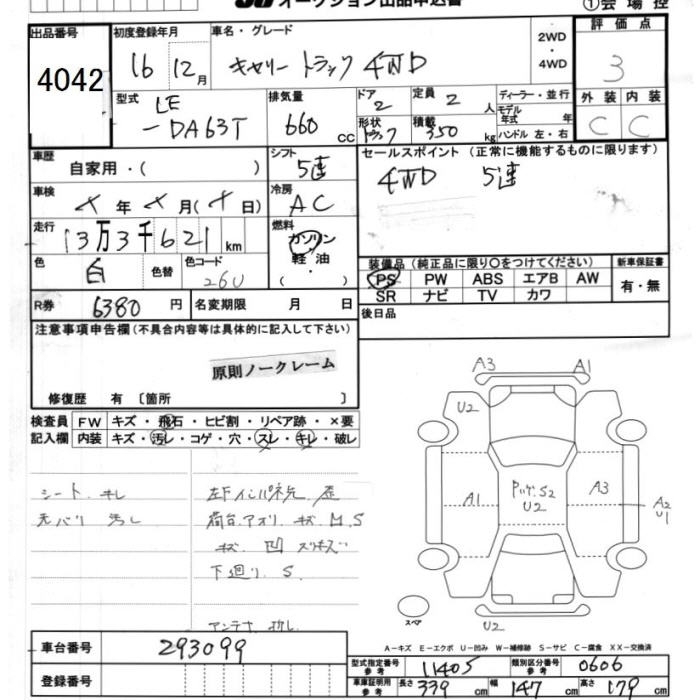 オークション出品申込書
①会場控
出品番号
4042
初度登録年月
16 12月
車名・グレード
キャリー トラック 4WD
・2WD
・4WD
評価点
3
外装 内装
C C
型式
LE
-DA63T
排気量
660 cc
ドア
2
定員 2 人
形状
トラック
積載
350 kg
ディーラー・並行
モデル年式 年
ハンドル 左・右
車歴
自家用・( )
シフト
5速
セールスポイント (正常に機能するものに限ります)
4WD 5速
車検
年 月( 日)
冷房
AC
走行
13万3千621km
燃料
ガソリン
軽油
( ・ )
色
白
色替
色コード
26U
装備品 (純正品に限り〇をつけてください)
PS PW ABS エアB AW
SR ナビ TV カワ
新車保証書
有・無
R券 6380 円
名変期限 月 日
後日品
注意事項申告欄 (不具合内容等は具体的に記入して下さい)
原則ノークレーム
修復歴 有 〔箇所 〕
検査員記入欄
FW キズ・飛石・ヒビ割・リペア跡・×要
内装 キズ・汚レ・コゲ・穴・スレ・キレ・破レ
シート キレ
左F インパネ穴
荷台.アオリ キズ M.S
キズ 凹
下廻り S
アンテナ
A3 A1
U2
A1
S2
U2
A3
A2
U1
スペア
U2
A-キズ E-エクボ U-凹み W-補修跡 S-サビ C-腐食 XX-交換済
車台番号 293099
登録番号
型式指定番号 参考 11405
類別区分番号 参考 0606
車庫証明用 参考 長さ 339 cm 幅 147 cm 高さ 179 cm